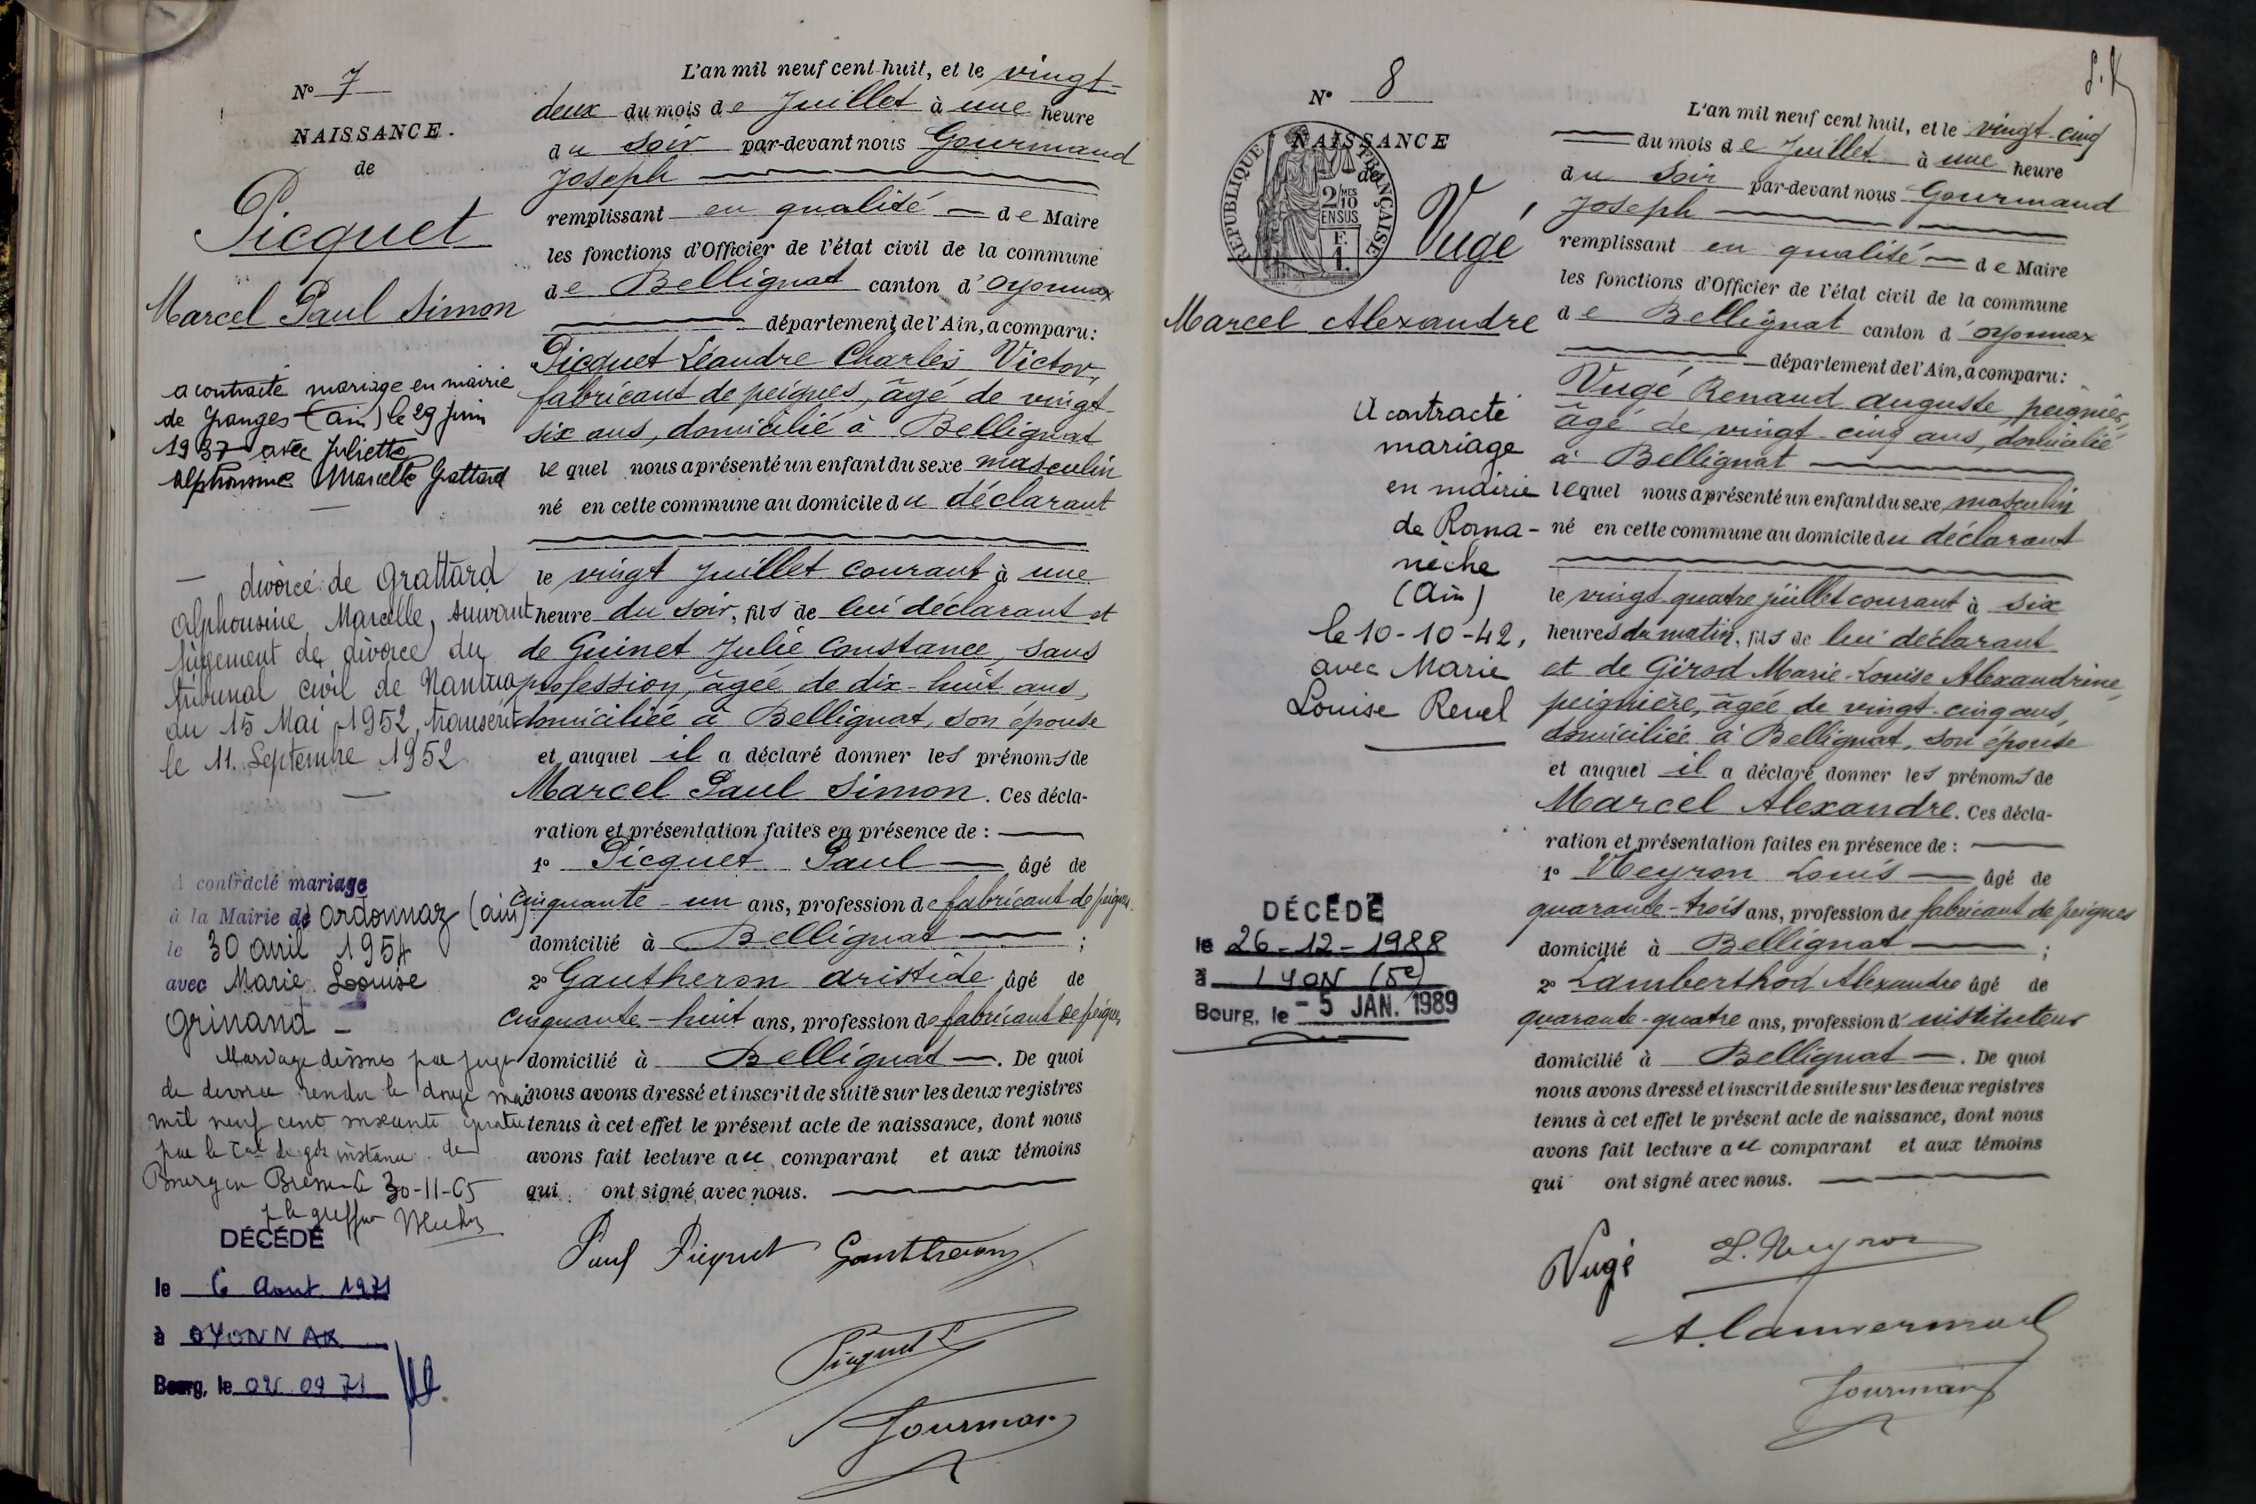 N° 7
NAISSANCE.
de
Picquet
Marcel Paul Simon
a contracté mariage en mairie
de Granges (Ain) le 29 juin
1937 avec Juliette
Alphonsine Marcelle Grattard
divorcé de Grattard
Alphonsine Marcelle, suivant
jugement de divorce du
tribunal civil de Nantua
du 15 Mai 1952, transcrit
le 11 Septembre 1952
A contracté mariage
à la Mairie de Ardonnaz (Ain)
le 30 avril 1954
avec Marie Louise
Grinand
Mariage dissous par juge
de divorce rendu le douze mai
mil neuf cent soixante quatre
par le Tal de gde instance de
Bourg en Bresse le 30-11-65
p le greffier
DÉCÉDÉ
le 6 Aout 1971
à OYONNAX
Bourg, le 09 71
L'an mil neuf cent huit, et le vingt-
deux du mois de Juillet à une heure
du soir par-devant nous Gourmand
Joseph
remplissant en qualité de Maire
les fonctions d'Officier de l'état civil de la commune
de Bellignat canton d'Oyonnax
département de l'Ain, a comparu:
Picquet Léandre Charles Victor,
fabricant de peignes, âgé de vingt-
six ans, domicilié à Bellignat
lequel nous a présenté un enfant du sexe masculin
né en cette commune au domicile du déclarant
le vingt Juillet courant à une
heure du soir, fils de lui déclarant et
de Guinet Julie Constance, sans
profession, âgée de dix-huit ans,
domiciliée à Bellignat, son épouse
et auquel il a déclaré donner les prénoms de
Marcel Paul Simon. Ces décla-
ration et présentation faites en présence de :
1° Picquet Paul âgé de
cinquante-un ans, profession de fabricant de peignes
domicilié à Bellignat ;
2° Gautheron Aristide âgé de
cinquante-huit ans, profession de fabricant de peignes
domicilié à Bellignat. De quoi
nous avons dressé et inscrit de suite sur les deux registres
tenus à cet effet le présent acte de naissance, dont nous
avons fait lecture au comparant et aux témoins
qui ont signé avec nous.
Paul Picquet Gautheron
Picquet L
Gourmand
N° 8
NAISSANCE
de
RÉPUBLIQUE FRANÇAISE
2/10 MES
EN SUS
F.
1.
Vugé
Marcel Alexandre
A contracté
mariage
en mairie
de Roma-
nèche
(Ain)
le 10-10-42,
avec Marie
Louise Revel
DÉCÉDÉ
le 26-12-1988
à LYON (5e)
Bourg, le -5 JAN. 1989
L'an mil neuf cent huit, et le vingt-cinq
du mois de Juillet à une heure
du soir par-devant nous Gourmand
Joseph
remplissant en qualité de Maire
les fonctions d'Officier de l'état civil de la commune
de Bellignat canton d'Oyonnax
département de l'Ain, a comparu:
Vugé Renaud Auguste, peignier,
âgé de vingt-cinq ans, domicilié
à Bellignat
lequel nous a présenté un enfant du sexe masculin
né en cette commune au domicile du déclarant
le vingt-quatre juillet courant à six
heures du matin, fils de lui déclarant
et de Girod Marie-Louise Alexandrine,
peignière, âgée de vingt-cinq ans,
domiciliée à Bellignat, son épouse
et auquel il a déclaré donner les prénoms de
Marcel Alexandre. Ces décla-
ration et présentation faites en présence de :
1° Neyron Louis âgé de
quarante-trois ans, profession de fabricant de peignes
domicilié à Bellignat ;
2° Alexandre âgé de
quarante-quatre ans, profession d'instituteur
domicilié à Bellignat. De quoi
nous avons dressé et inscrit de suite sur les deux registres
tenus à cet effet le présent acte de naissance, dont nous
avons fait lecture au comparant et aux témoins
qui ont signé avec nous.
Vugé L. Neyron
Gourmand